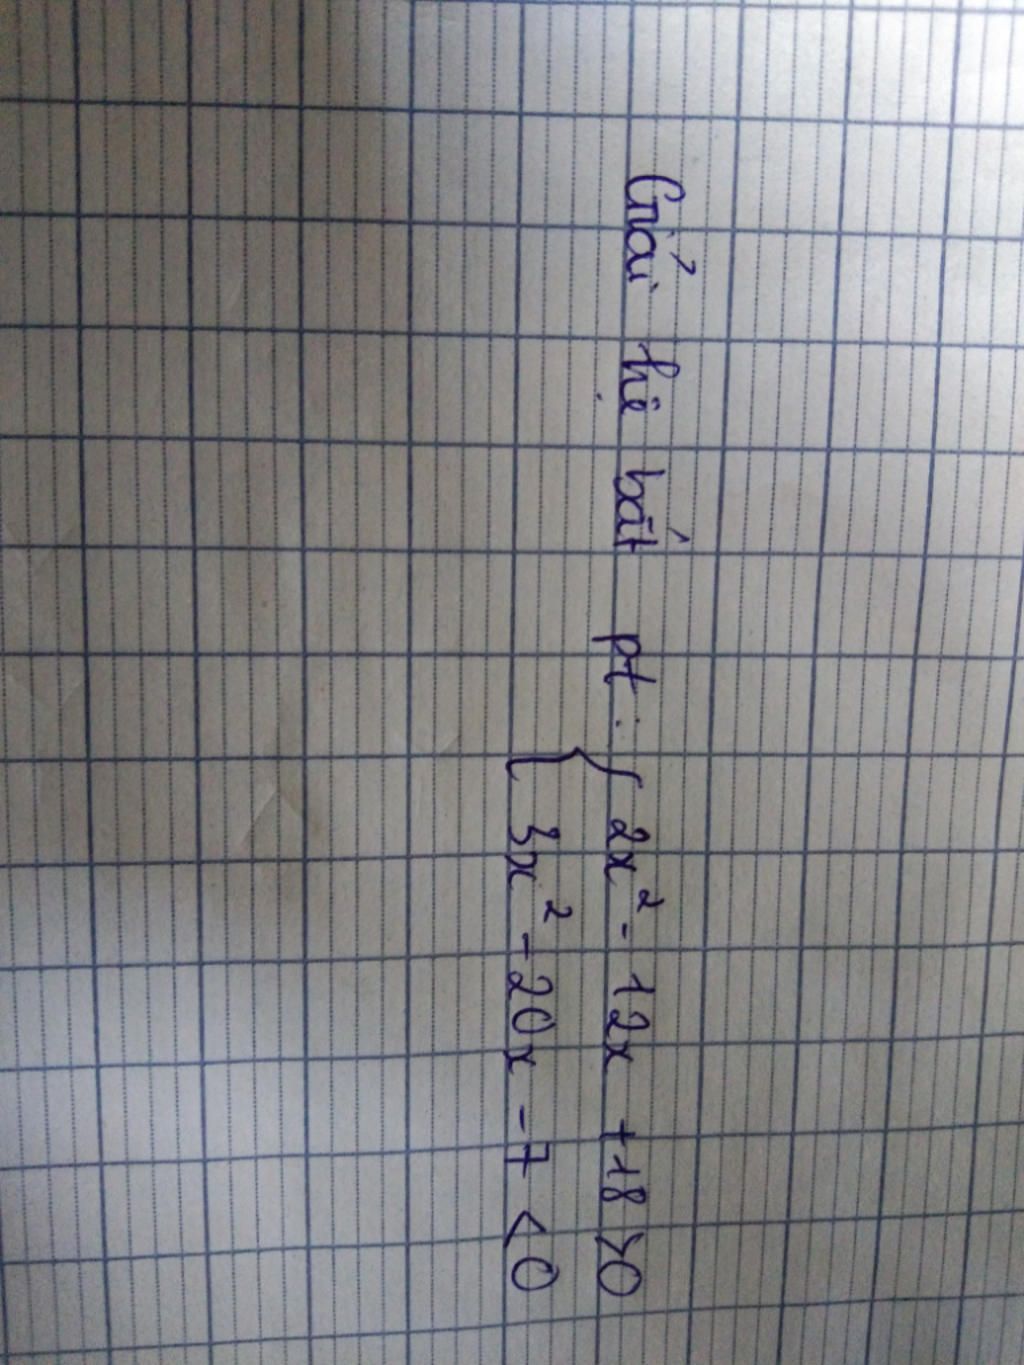 Giải hệ bất pt : { 2x² - 12x + 18 > 0
3x² - 20x - 7 < 0